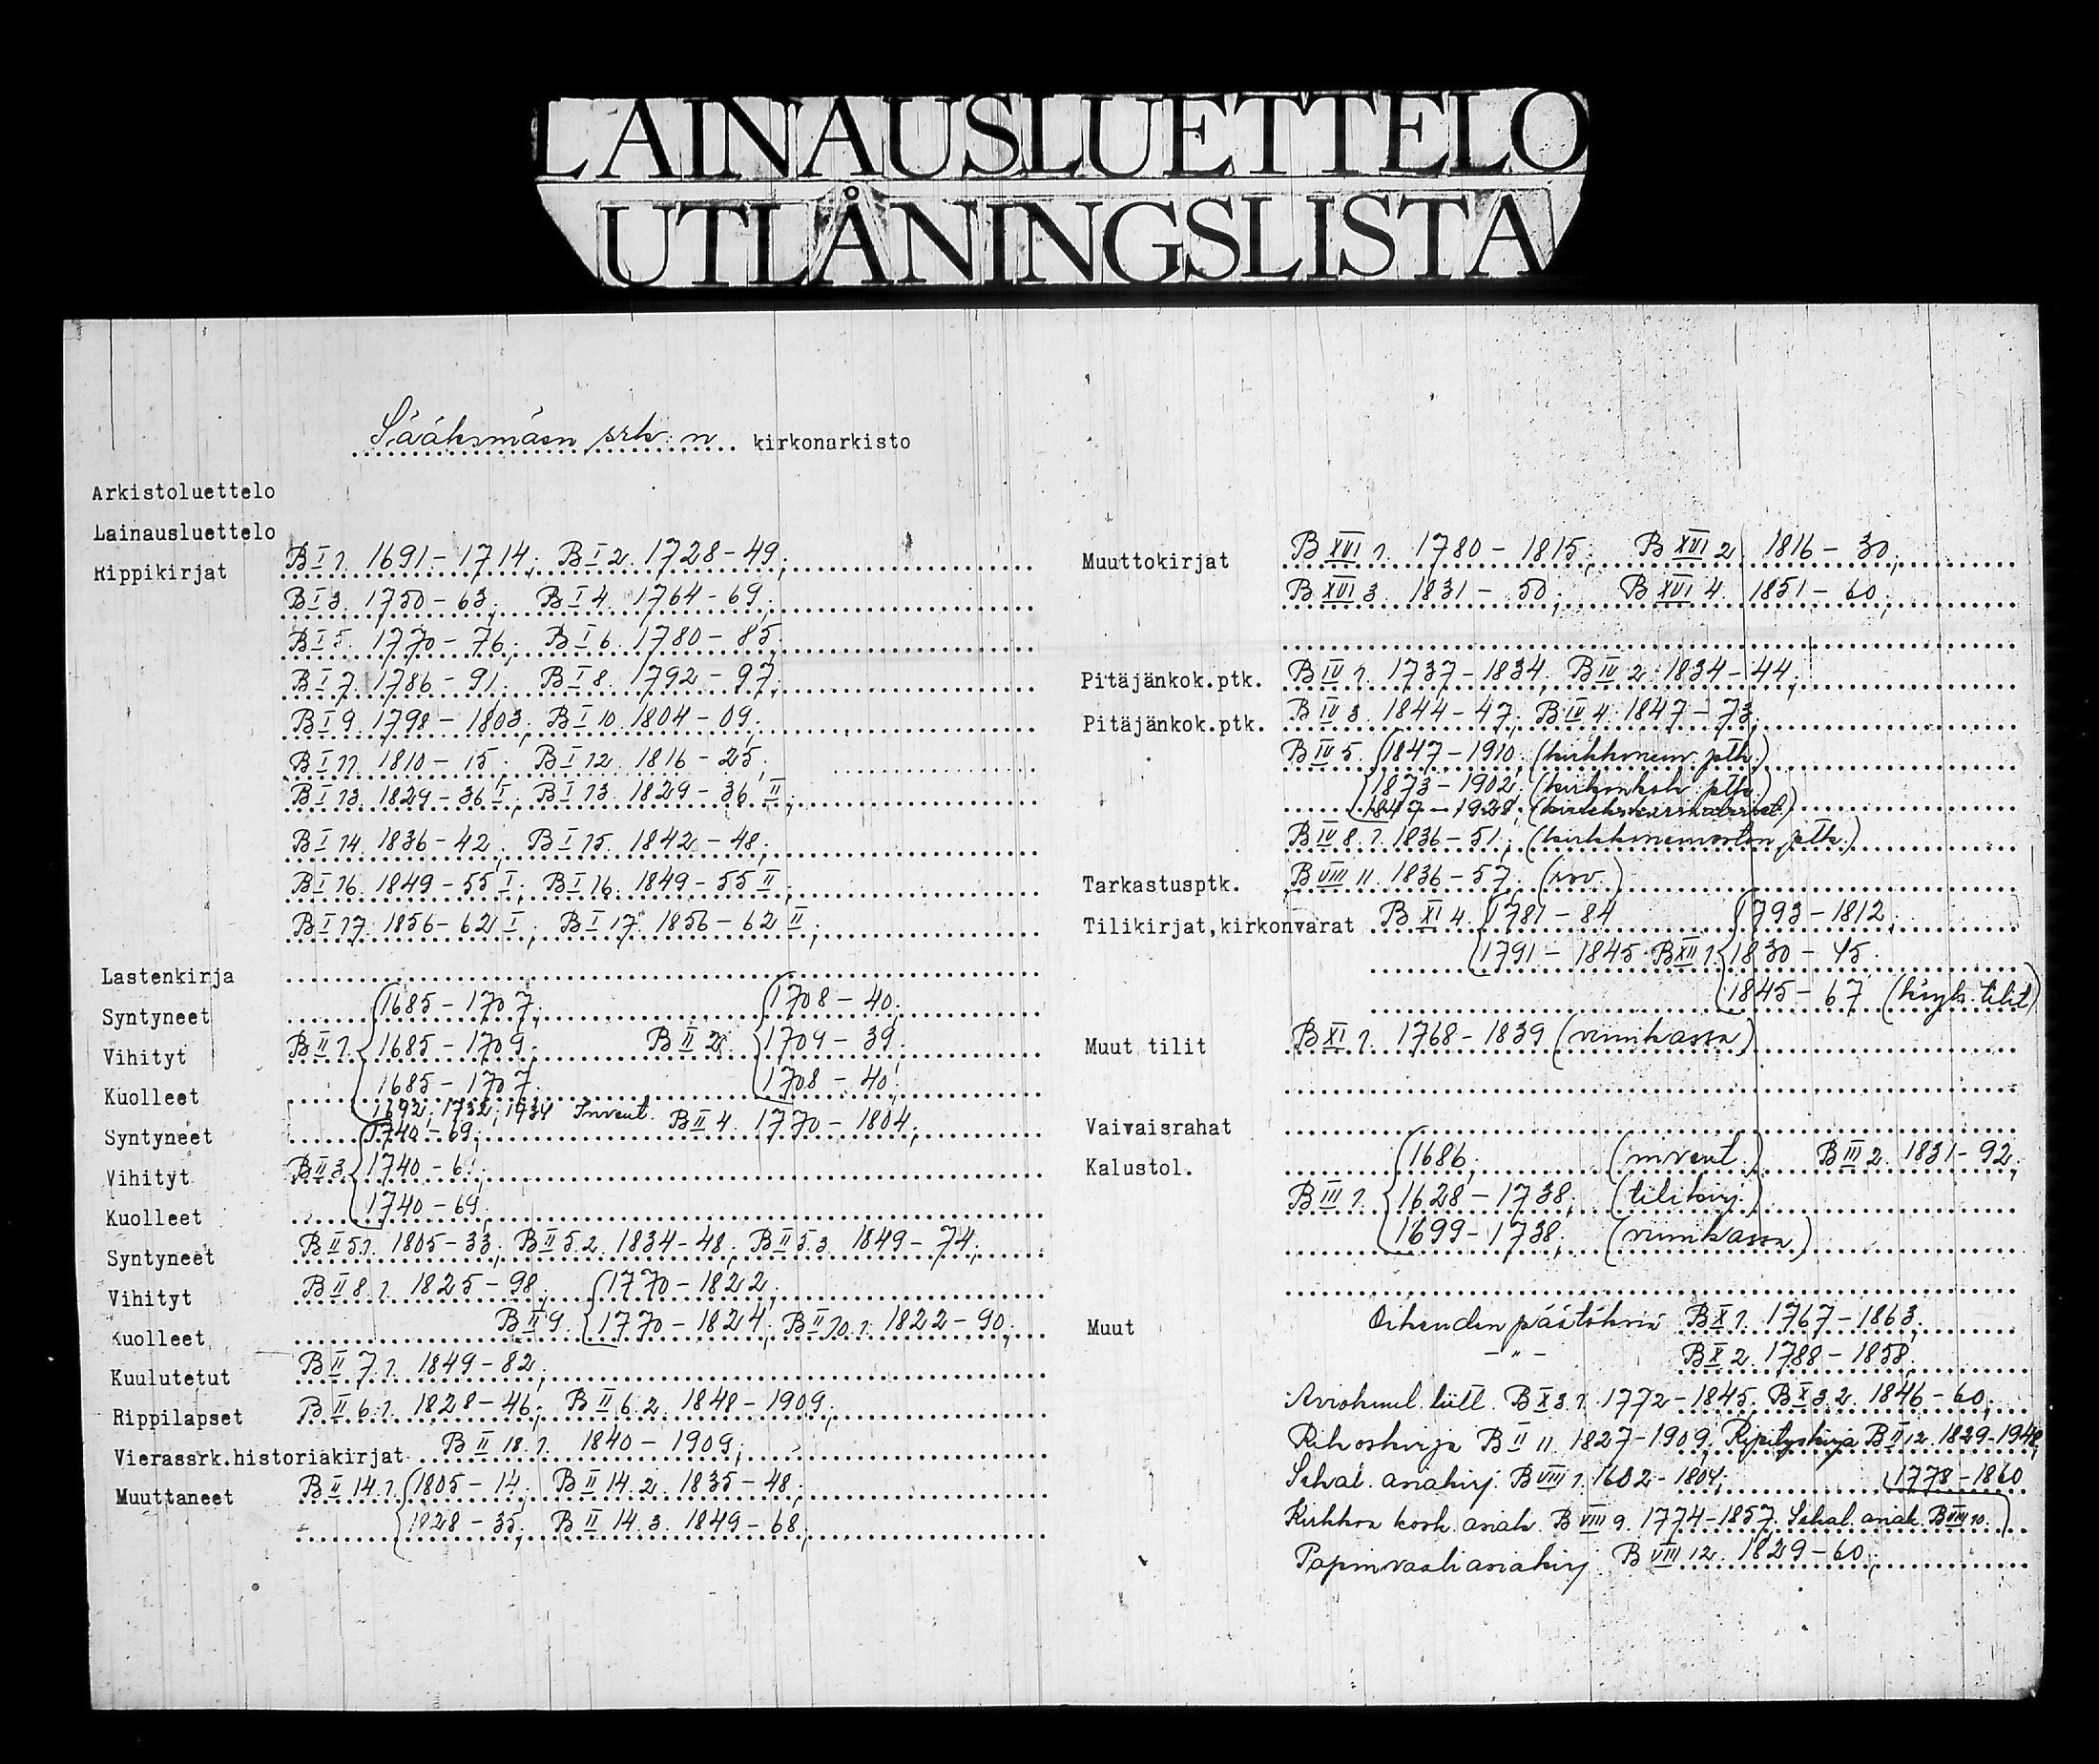 LAINAUSLUETTELO
UTLÅNINGSLISTA
Sääksmäen srk:n kirkonarkisto
Arkistoluettelo
Lainausluettelo
Rippikirjat B I 1. 1691-1714; B I 2. 1728-49;
B I 3. 1750-63; B I 4. 1764-69;
B I 5. 1770-76; B I 6. 1780-85;
B I 7. 1786-91; B I 8. 1792-97;
B I 9. 1798-1803; B I 10. 1804-09;
B I 11. 1810-15; B I 12. 1816-25;
B I 13. 1829-36 I; B I 13. 1829-36 II;
B I 14. 1836-42; B I 15. 1842-48;
B I 16. 1849-55 I; B I 16. 1849-55 II;
B I 17. 1856-62 I; B I 17. 1856-62 II;
Lastenkirja
Syntyneet 1685-1707; 1708-40;
Vihityt B II 1. 1685-1709; B II 2. 1709-39;
Kuolleet 1685-1707; 1708-40;
1692; 1732; 1734 Invent.
Syntyneet 1740-69; B II 4. 1770-1804;
Vihityt B II 3. 1740-6
Kuolleet 1740-69.
Syntyneet B II 5.1. 1805-33; B II 5.2. 1834-48; B II 5.3. 1849-74;
Vihityt B II 8.1. 1825-98; 1770-1822;
Kuolleet B II 9. 1770-1824; B II 10.1. 1822-90;
Kuulutetut B II 7.1. 1849-82;
Rippilapset B II 6.1. 1828-46; B II 6.2. 1848-1909;
Vierassrk.historiakirjat B II 18.1. 1840-1909;
Muuttaneet B II 14.1. 1805-14; B II 14.2. 1835-48;
1828-35; B II 14.3. 1849-68;
Muuttokirjat B XVI 1. 1780-1815; B XVI 2. 1816-30;
B XVI 3. 1831-50; B XVI 4. 1851-60;
Pitäjänkok.ptk. B IV 1. 1737-1834; B IV 2. 1834-44;
Pitäjänkok.ptk. B IV 3. 1844-47; B IV 4. 1847-73;
B IV 5. 1847-1910; (kirkkonem. ptk.)
1873-1902; (kirkonkok. ptk.)
1847-1928;
B IV 8.1. 1836-51; (kirkkonemostön ptk.)
Tarkastusptk. B VIII 11. 1836-57; (rov.)
Tilikirjat,kirkonvarat B XI 4. 1781-84 1793-1812;
1791-1845 B XII 1. 1830-45.
1845-67 (köyh. tilit)
Muut tilit B XI 1. 1768-1839 (viinikassa)
Vaivaisrahat
Kalustol. 1686; (invent.) B III 2. 1831-92;
B III 1. 1628-1738; (tilikirj.)
1699-1738; (viinikassa)
Muut Oikeuden päätöksiä B X 1. 1767-1863;
- " - B X 2. 1788-1858;
Aviokuul. luett. B X 3.1. 1772-1845; B X 3.2. 1846-60;
Rikoskirja B II 11. 1827-1909; Ripityskirja B II 12. 1829-1948;
Sekal. asiakirj. B VIII 1. 1602-1804; 1778-1860
Kirkkoa kosk. asiak. B VIII 9. 1774-1857. Sekal. asiak. B VIII 10.
Papinvaaliasiakirj. B VIII 12. 1829-60;